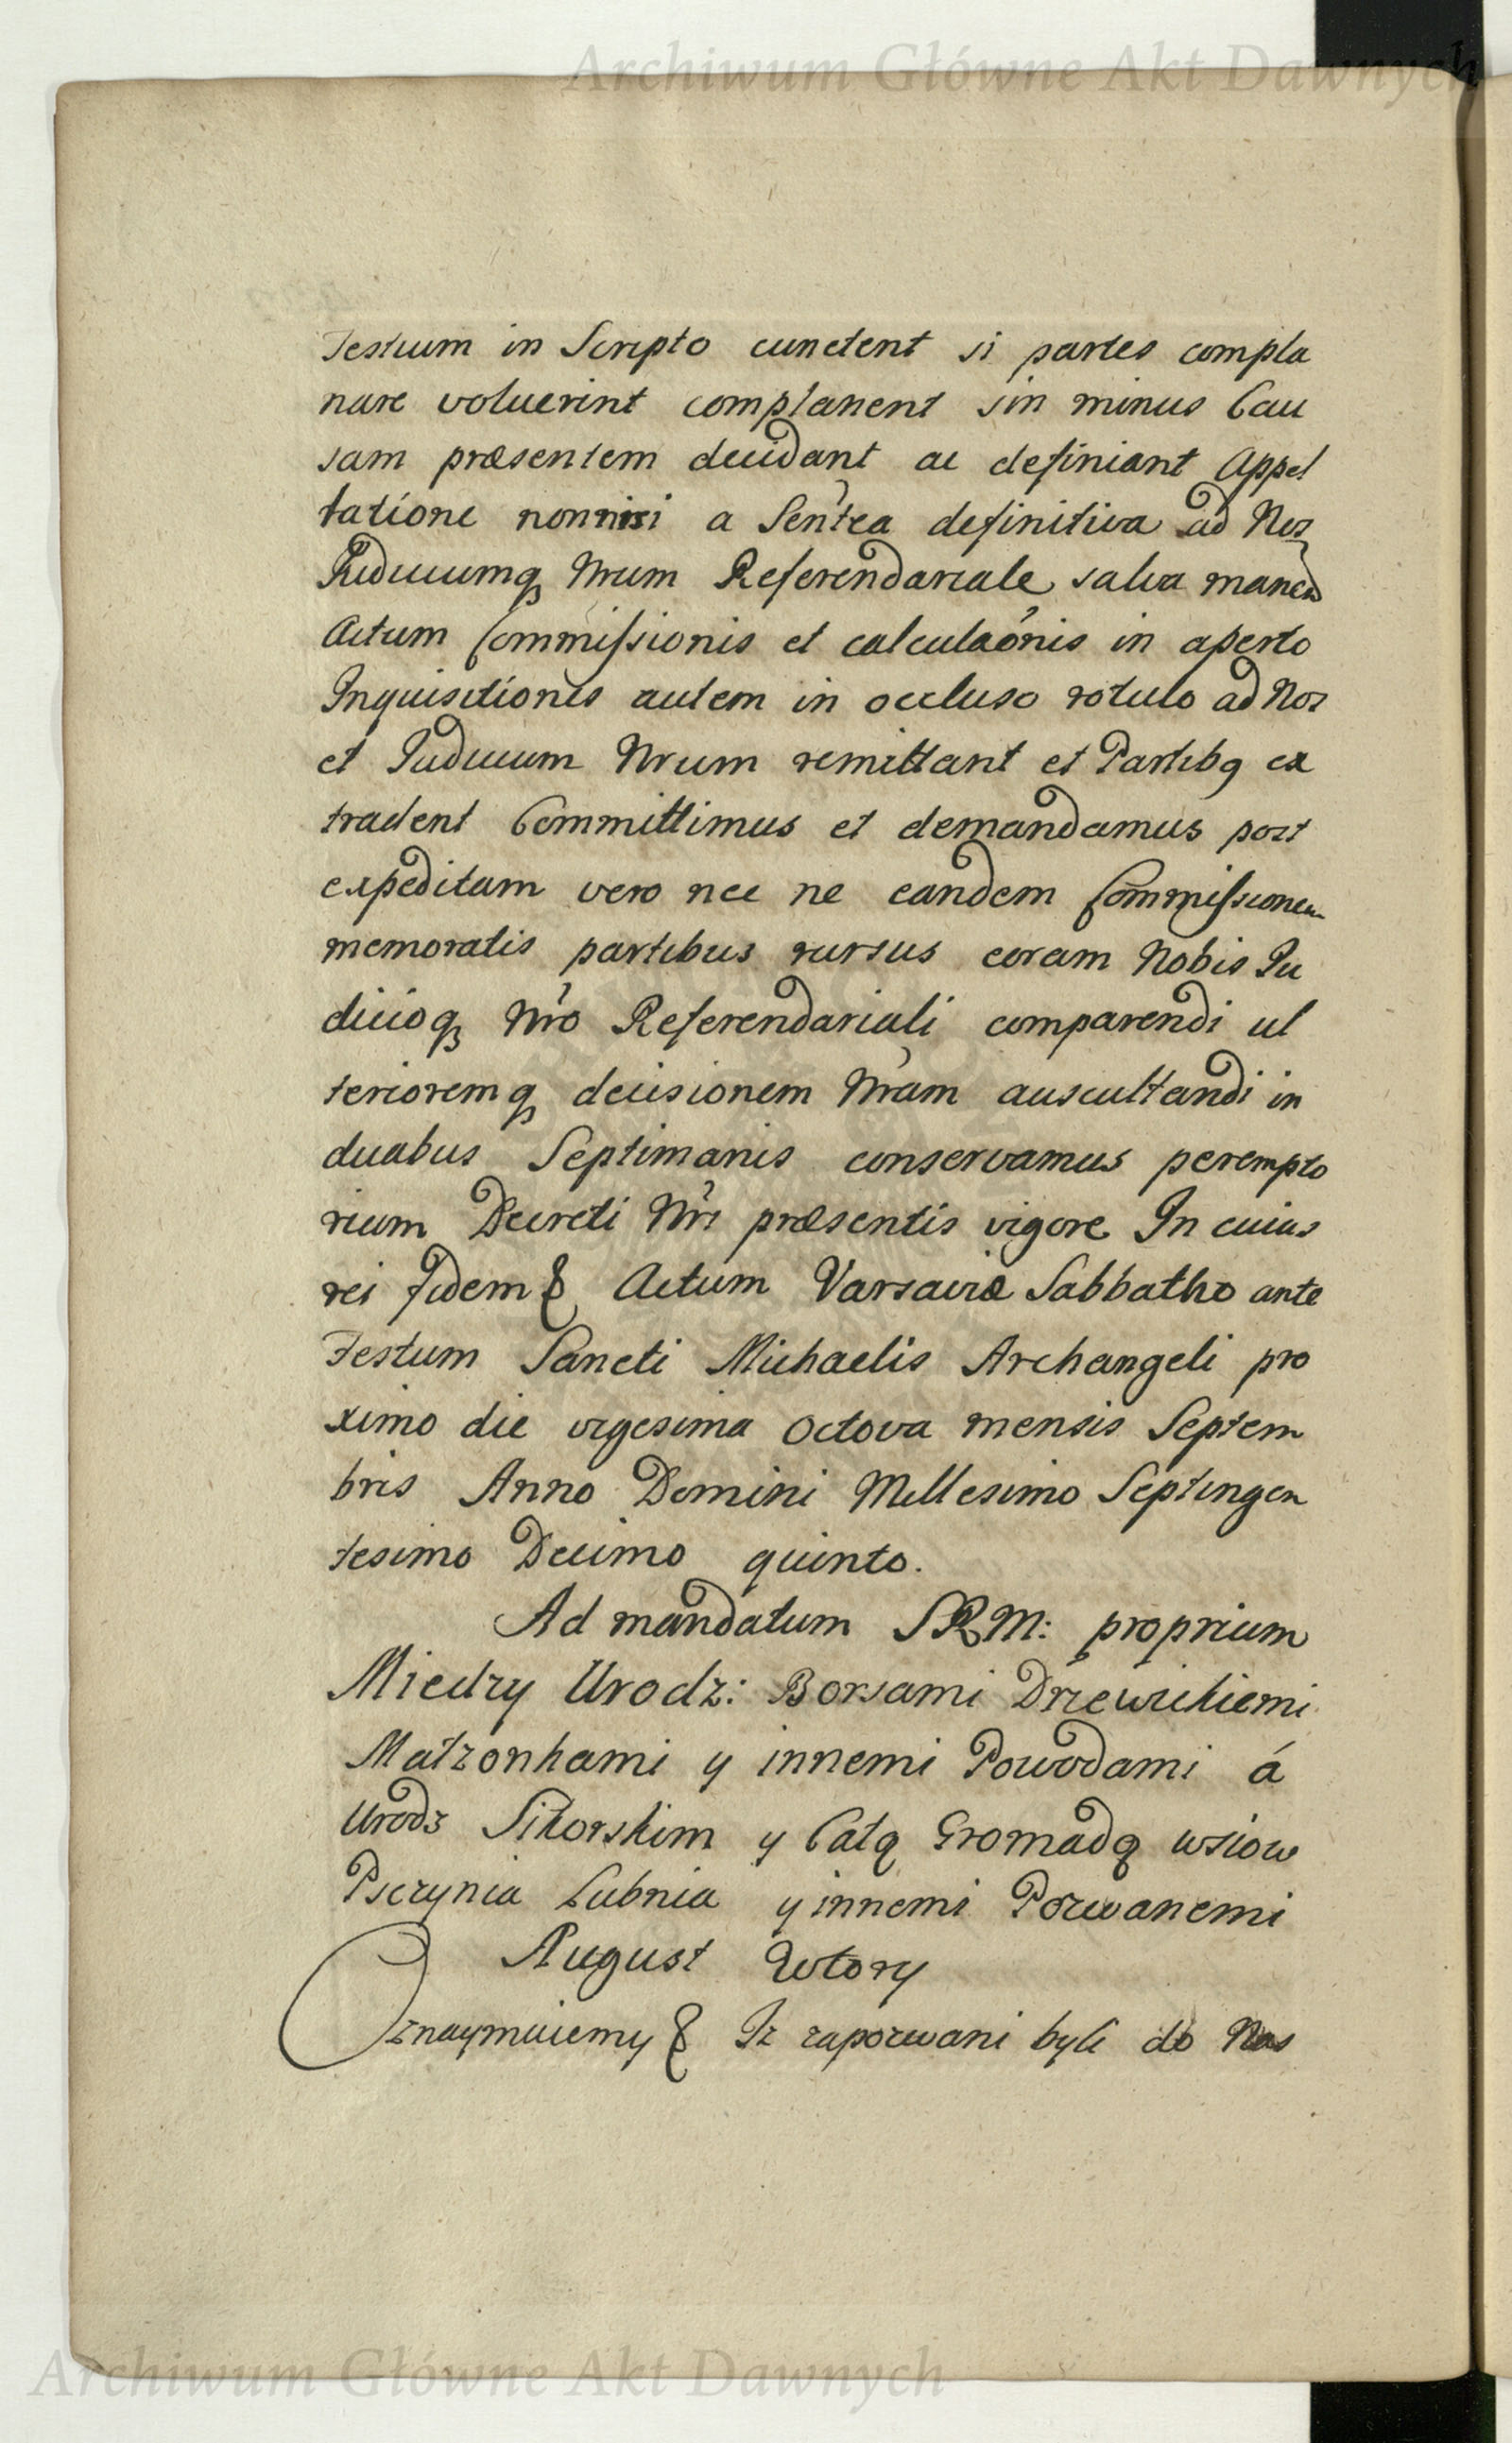 Archiwum Główne Akt Dawnych
Testium in Scripto cunctent si partes compla
nare voluerint complanent sin minus Cau
sam præsentem decidant ac definiant Appel
latione nonnisi a Sentea definitiva ad Nos
Judiciumq Nrum Referendariale salva manen
Actum Commissionis et calculaonis in aperto
Inquisitiones autem in occluso rotulo ad Nos
et Judicium Nrum remittant et Partibq ex
tradent Committimus et demandamus post
expeditam vero nec ne eandem Commissionem
memoratis partibus rursus coram Nobis Ju
dicioq Nro Referendariali comparendi ul
terioremq decisionem Nram auscultandi in
duabus Septimanis conservamus perempto
rium Decreti Nri præsentis vigore In cuius
rei fidem & Actum Varsaviæ Sabbatho ante
Festum Sancti Michaelis Archangeli pro
ximo die vigesima Octava mensis Septem
bris Anno Domini Millesimo Septingen
tesimo Decimo quinto.
Ad mandatum SRM: proprium
Miedzy Urodz: Borsami Drzewickiemi
Małzonkami y innemi Powodami á
Urodz Sikorskim y Całą Gromadą wsiow
Psczynia Lubnia y innemi Pozwanemi
August Wtory
Oznaymuiemy & Iz zapozwani byli do Nas
Archiwum Główne Akt Dawnych